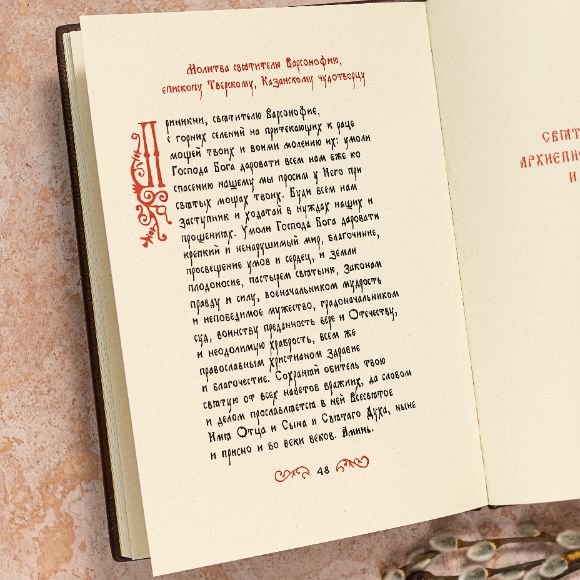 Молитва святителю Варсонофию,
епископу Тверскому, Казанскому чудотворцу
Приникни, святителю Варсонофие,
с горних селений на притекающих к раце
мощей твоих и вонми молению их: умоли
Господа Бога даровати всем нам еже ко
спасению нашему мы просим у Него при
святых мощах твоих. Буди всем нам
заступник и ходатай в нуждах наших и
прошениях. Умоли Господа Бога даровати
крепкий и ненарушимый мир, благочиние,
просвещение умов и сердец, и земли
плодоносие, пастырем святыню, законам
правду и силу, военачальником мудрость
и непобедимое мужество, градоначальником
суд, воинству преданность вере и Отечеству,
и неодолимую храбрость, всем же
православным христианом здравие
и благочестие. Сохраняй обитель твою
святую от всех наветов вражиих, да словом
и делом прославляется в ней Всесвятое
Имя Отца и Сына и Святаго Духа, ныне
и присно и во веки веков. Аминь.
48
СВЯТ
АРХИЕПИС
И